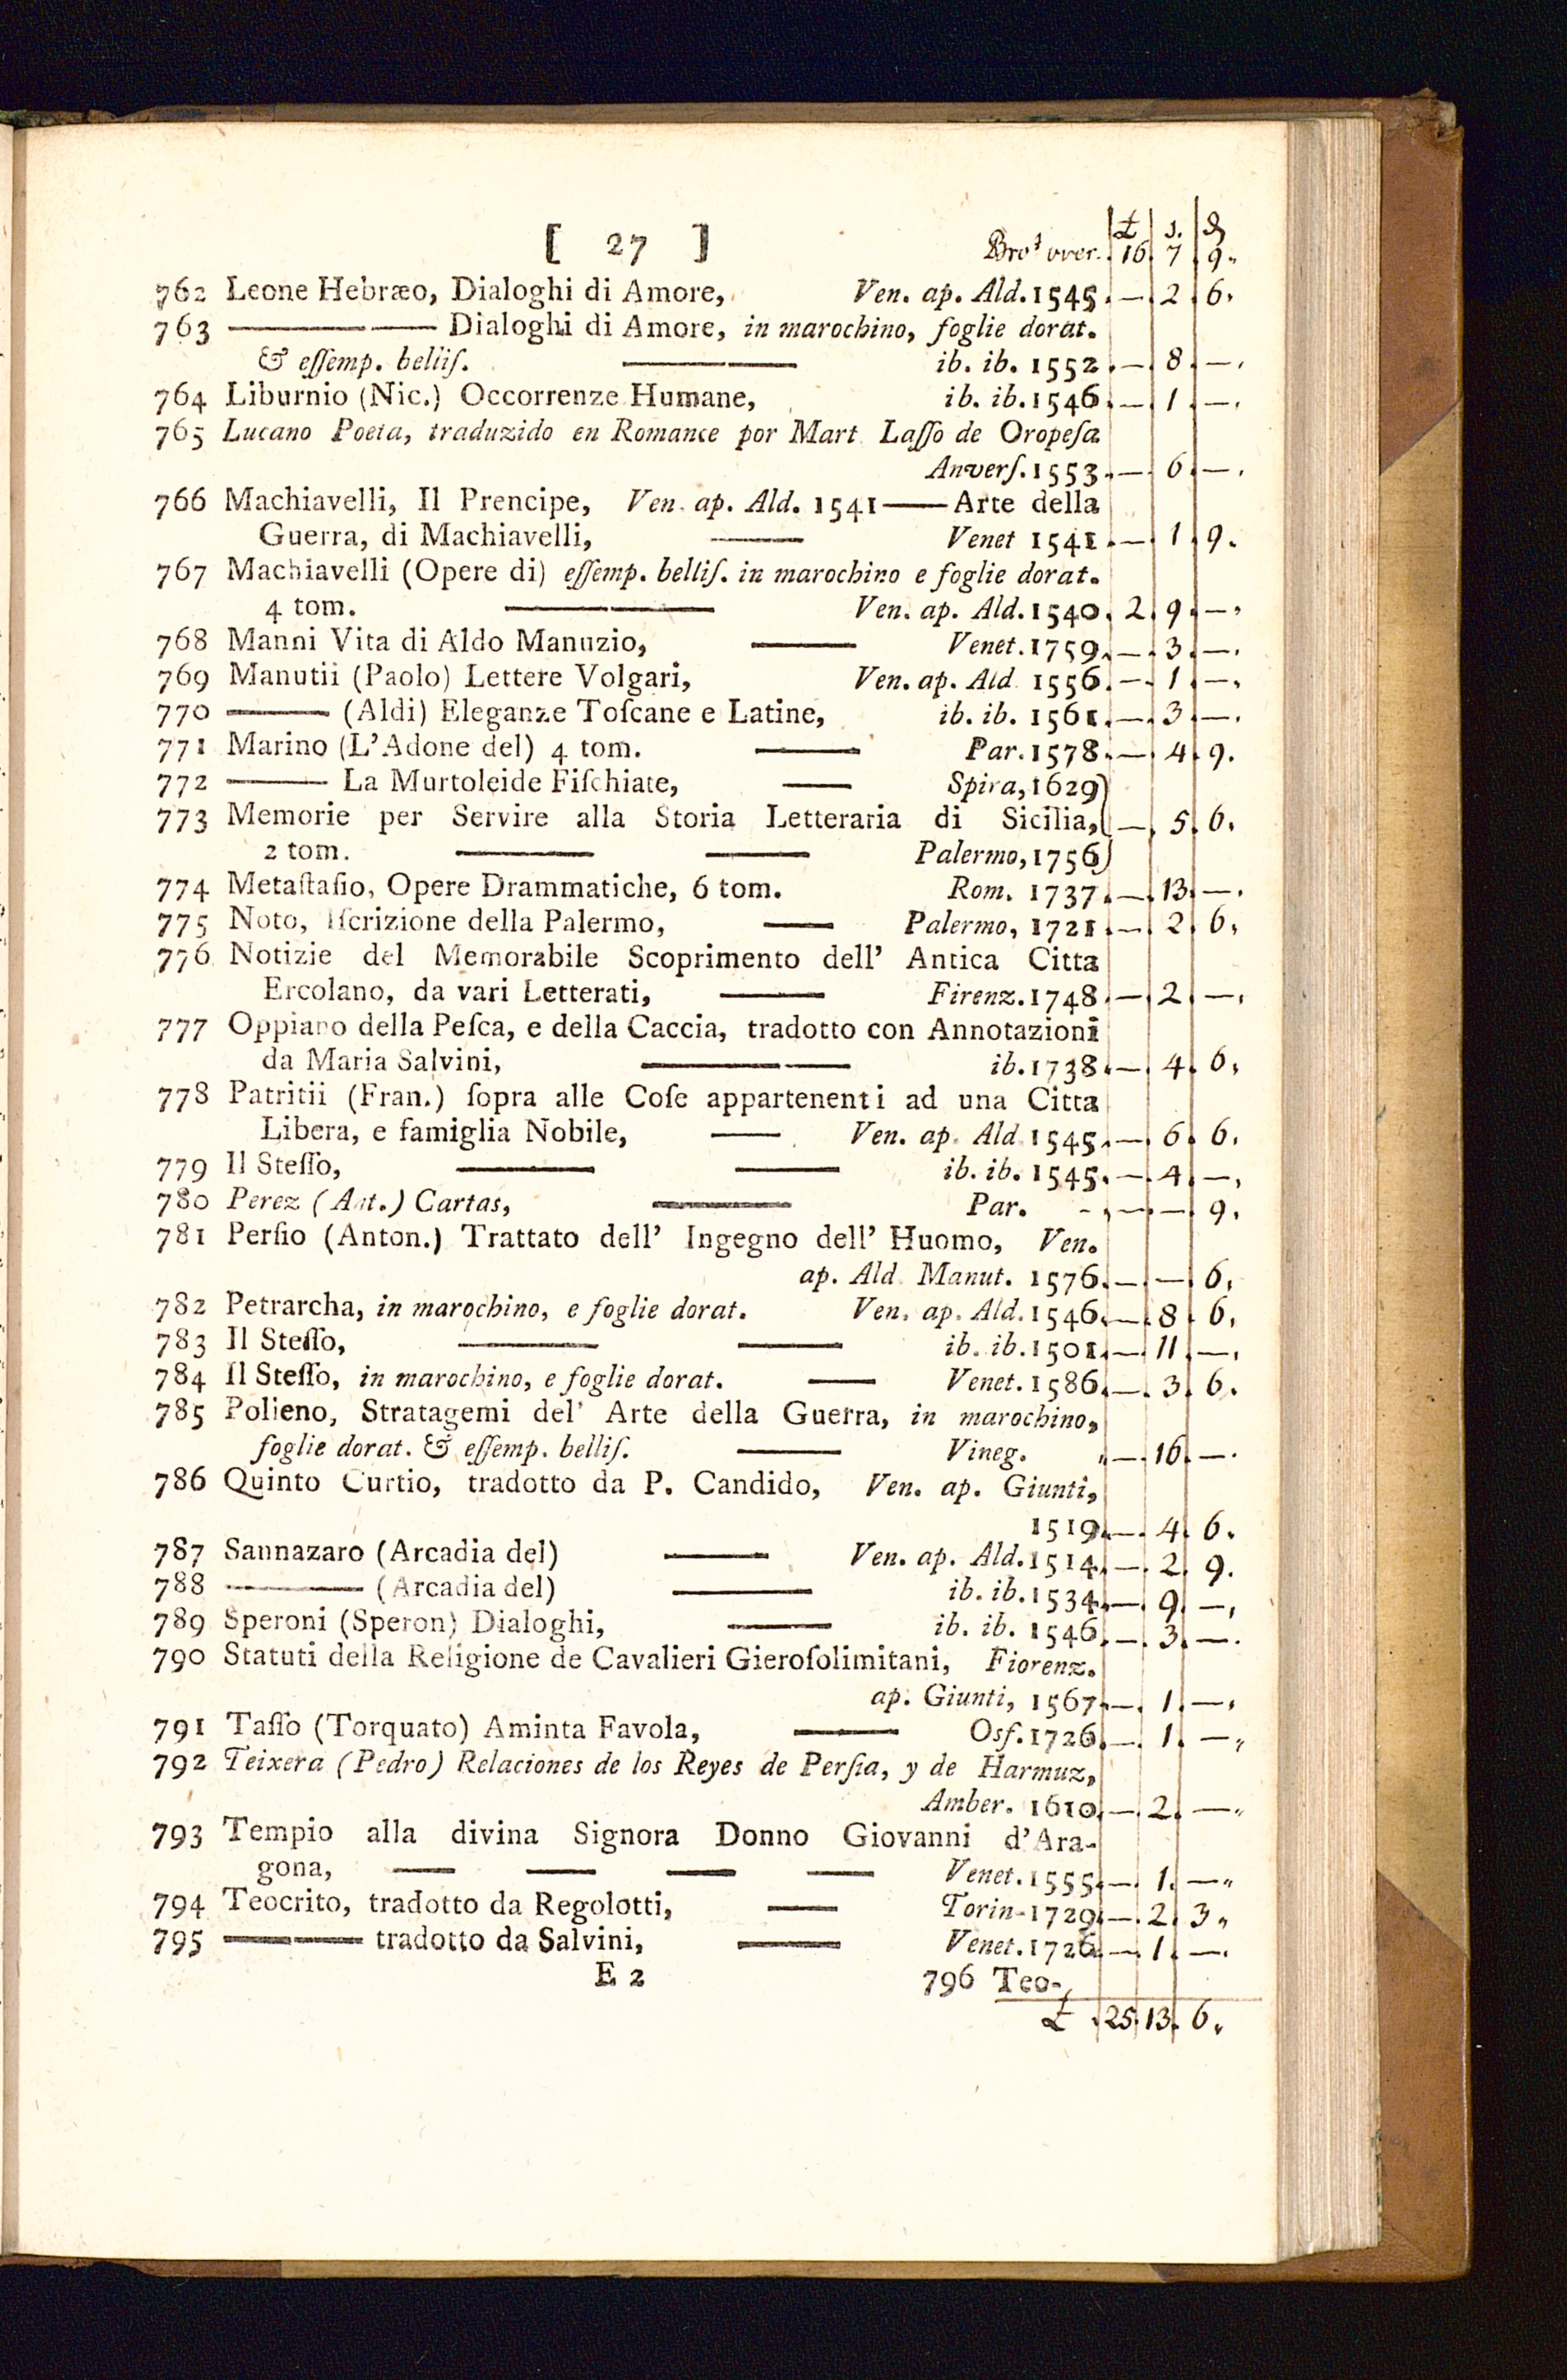 £ s. d
[ 27 ] Bro.t over. 16 7 9.
762 Leone Hebræo, Dialoghi di Amore, Ven. ap. Ald. 1545. — 2 6.
763 —— —— Dialoghi di Amore, in marochino, foglie dorat.
& eſſemp. belliſ. —— ib. ib. 1552. — 8 —.
764 Liburnio (Nic.) Occorrenze Humane, ib. ib. 1546. — 1 —.
765 Lucano Poeta, traduzido en Romance por Mart Laſſo de Oropeſa
Anverſ. 1553. — 6 —.
766 Machiavelli, Il Prencipe, Ven. ap. Ald. 1541 —— Arte della
Guerra, di Machiavelli, —— Venet 1541. — 1 9.
767 Machiavelli (Opere di) eſſemp. belliſ. in marochino e foglie dorat.
4 tom. —— Ven. ap. Ald. 1540. 2 9 —.
768 Manni Vita di Aldo Manuzio, —— Venet. 1759. — 3 —.
769 Manutii (Paolo) Lettere Volgari, Ven. ap. Ald 1556. — 1 —.
770 —— (Aldi) Eleganze Toſcane e Latine, ib. ib. 1561. — 3 —.
771 Marino (L'Adone del) 4 tom. —— Par. 1578. — 4 9.
772 —— La Murtoleide Fiſchiate, —— Spira, 1629)
773 Memorie per Servire alla Storia Letteraria di Sicilia, — 5 6.
2 tom. —— —— Palermo, 1756)
774 Metaſtaſio, Opere Drammatiche, 6 tom. Rom. 1737. — 13 —.
775 Noto, Iſcrizione della Palermo, —— Palermo, 1721. — 2 6.
776 Notizie del Memorabile Scoprimento dell' Antica Citta
Ercolano, da vari Letterati, —— Firenz. 1748. — 2 —.
777 Oppiano della Peſca, e della Caccia, tradotto con Annotazioni
da Maria Salvini, —— ib. 1738. — 4 6.
778 Patritii (Fran.) ſopra alle Coſe appartenenti ad una Citta
Libera, e famiglia Nobile, —— Ven. ap. Ald 1545. — 6 6.
779 Il Steſſo, —— —— ib. ib. 1545. — 4 —.
780 Perez (Ant.) Cartas, —— Par. - — — 9.
781 Perſio (Anton.) Trattato dell' Ingegno dell' Huomo, Ven.
ap. Ald Manut. 1576. — — 6.
782 Petrarcha, in marochino, e foglie dorat. Ven. ap. Ald. 1546. — 8 6.
783 Il Steſſo, —— —— ib. ib. 1501. — 11 —.
784 Il Steſſo, in marochino, e foglie dorat. —— Venet. 1586. — 3 6.
785 Polieno, Stratagemi del' Arte della Guerra, in marochino,
foglie dorat. & eſſemp. belliſ. —— Vineg. — 16 —.
786 Quinto Curtio, tradotto da P. Candido, Ven. ap. Giunti,
1519. — 4 6.
787 Sannazaro (Arcadia del) —— Ven. ap. Ald. 1514. — 2 9.
788 —— (Arcadia del) —— ib. ib. 1534. — 9 —.
789 Speroni (Speron) Dialoghi, —— ib. ib. 1546. — 3 —.
790 Statuti della Religione de Cavalieri Gieroſolimitani, Fiorenz.
ap. Giunti, 1567. — 1 —.
791 Taſſo (Torquato) Aminta Favola, —— Osf. 1726. — 1 —.
792 Teixera (Pedro) Relaciones de los Reyes de Perſia, y de Harmuz,
Amber. 1610. — 2 —.
793 Tempio alla divina Signora Donno Giovanni d'Ara-
gona, —— —— —— —— Venet. 1555. — 1 —.
794 Teocrito, tradotto da Regolotti, —— Torin. 1729. — 2 3.
795 —— tradotto da Salvini, —— Venet. 1726. — 1 —.
E 2 796 Teo-
£ 25 13 6.